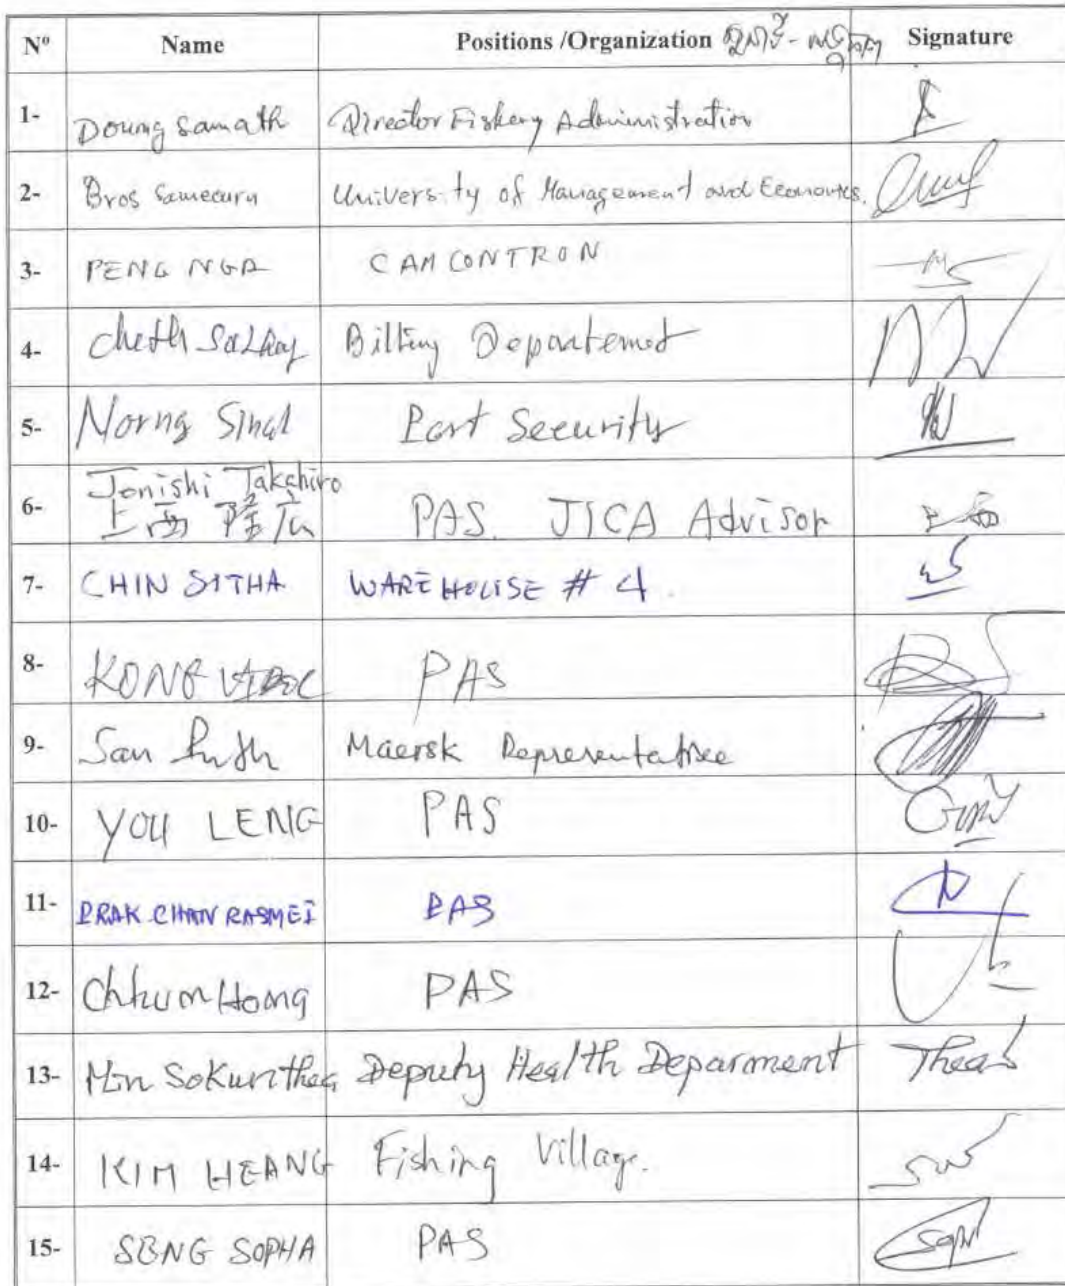 Nº Name Positions /Organization Signature
1- Doung Samath Director Fiskery Administration
2- Bros Samecurn University of Management and Economics.
3- PENG NGA CAMCONTRON
4- Cheth Billing Departemet
5- Norng Sinal Port Security
6- Jonishi Takahiro
上西 隆広 PAS. JICA Advisor 上西
7- CHIN SITHA WAREHOUSE # 4.
8- KONG PAS
9- San Maersk Representative
10- YOU LENG PAS
11- PRAK CHAN RASMEI PAS
12- Chhum Hong PAS
13- Min Sokunthea Deputy Health Deparment Thea
14- KIM HEANG Fishing Village.
15- SENG SOPHA PAS